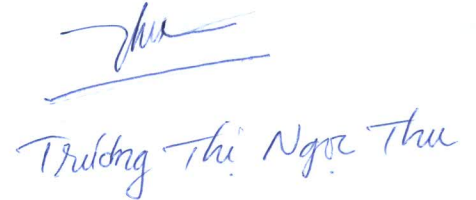 Thu
Trương Thị Ngọc Thu